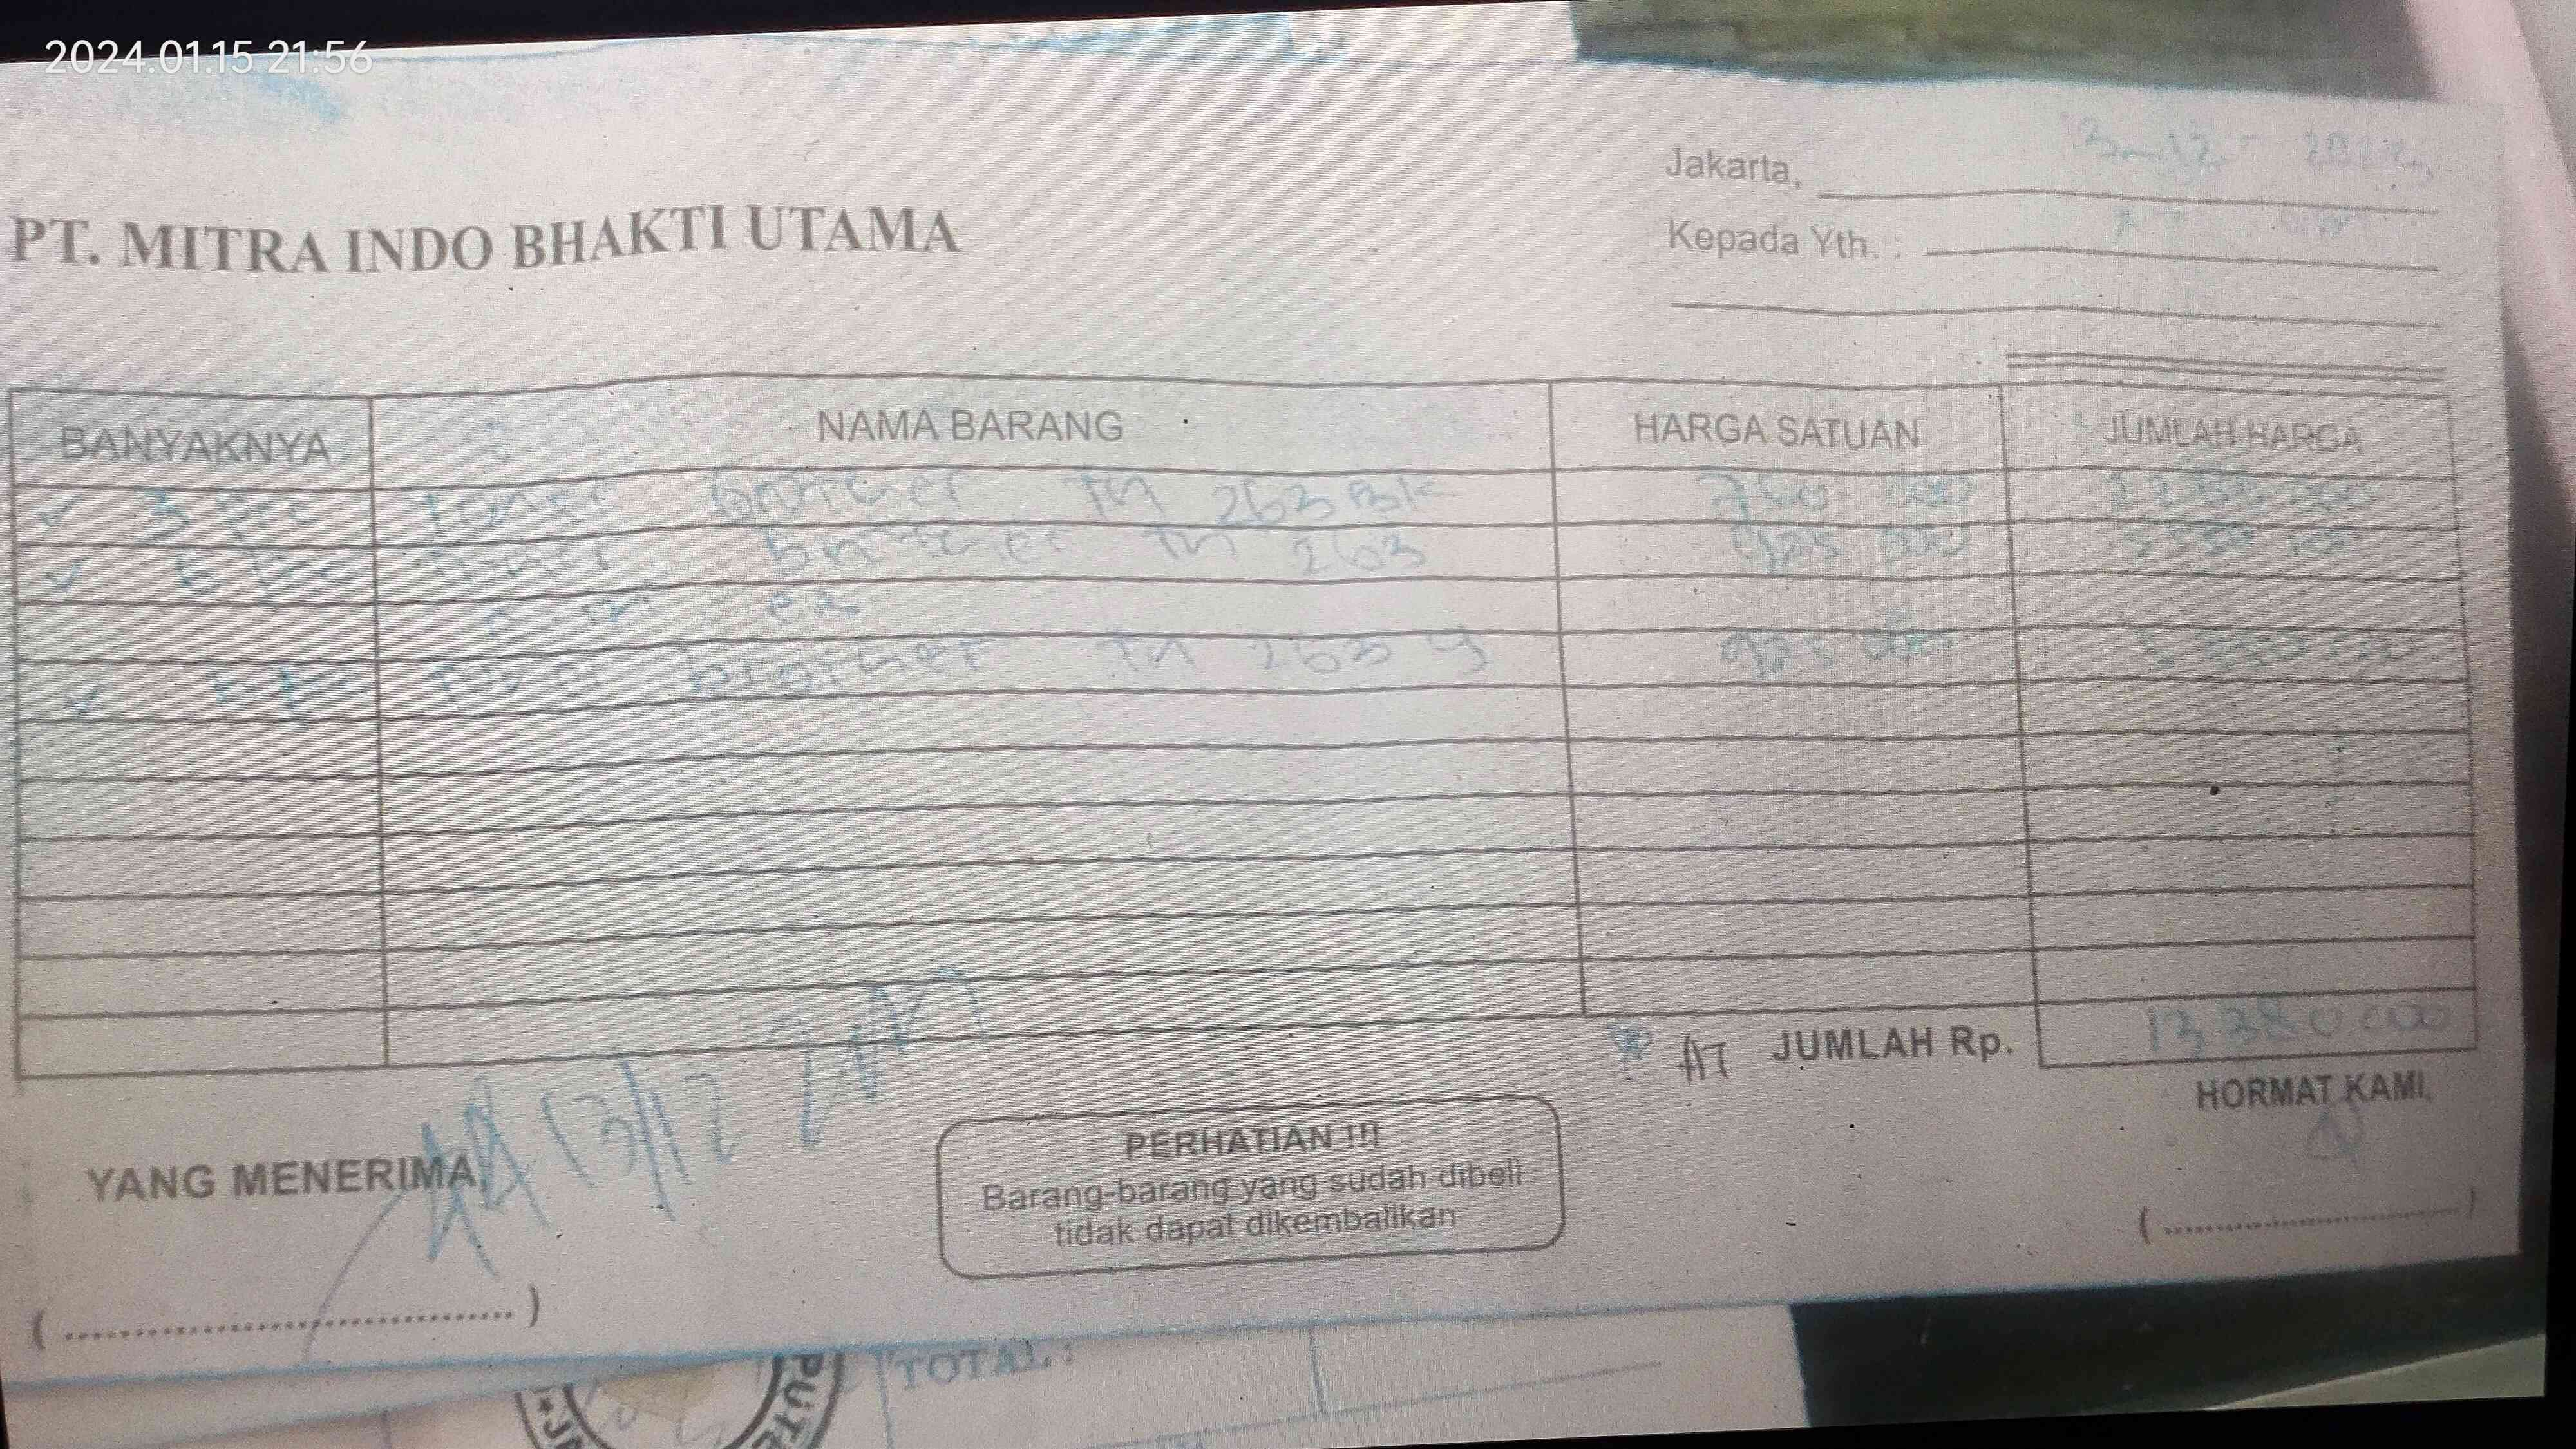 2024.01.15 21:56
23
Jakarta, 13-12-2023
Kepada Yth. : AT
PT. MITRA INDO BHAKTI UTAMA
BANYAKNYA NAMA BARANG HARGA SATUAN JUMLAH HARGA
✓ 3 pcc toner brother tn 263 Bk 760 000 2280 000
✓ 6 pcs toner brother tn 263 925 000 5550 000
c m e3
✓ 6 pcc toner brother tn 263 y 925 000 5550 000
AT JUMLAH Rp. 13 380 000
13/12
YANG MENERIMA,
HORMAT KAMI,
PERHATIAN !!!
Barang-barang yang sudah dibeli
tidak dapat dikembalikan
( .................................... )
( .................................... )
TOTAL :